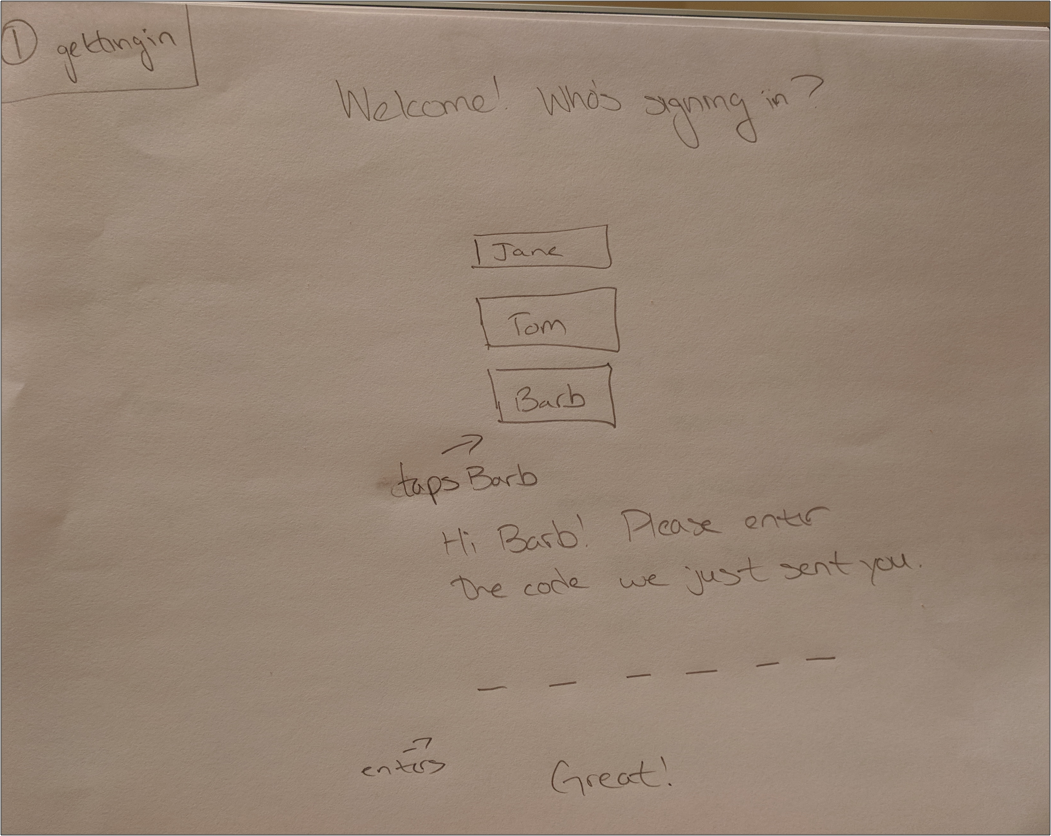 ① getting in
Welcome! Who's signing in?
Jane
Tom
Barb
taps Barb
Hi Barb! Please enter
the code we just sent you.
enters
Great!